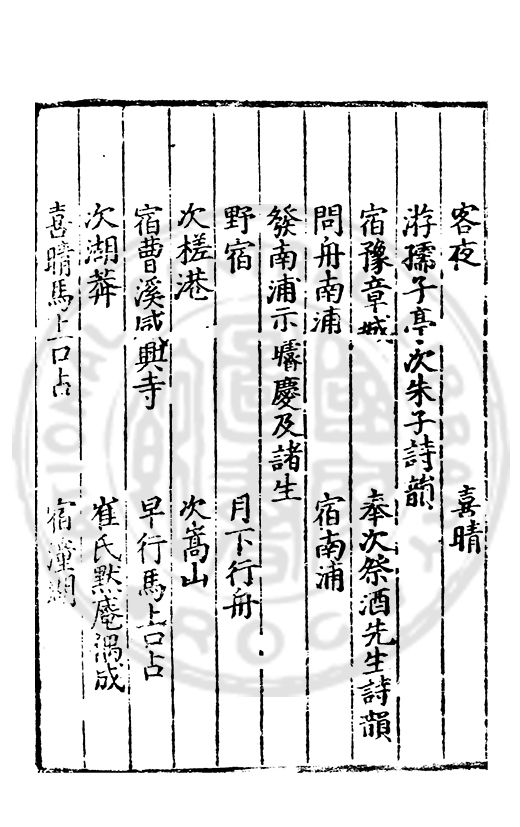 客夜 喜晴
游孺子亭次朱子詩韻
宿豫章城 奉次祭酒先生詩韻
問舟南浦 宿南浦
發南浦示疇慶及諸生
野宿 月下行舟
次槎港 次嵩山
宿曹溪咸興寺 早行馬上口占
次湖莾 崔氏默庵偶成
喜晴馬上口占 宿潼關